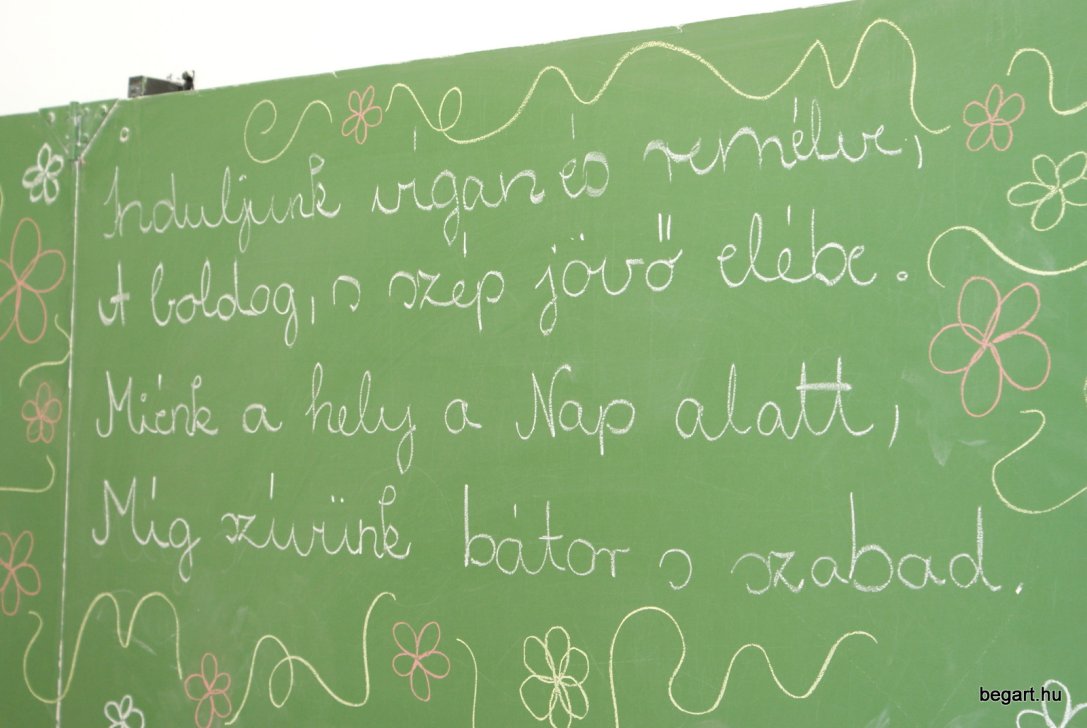 Induljunk vígan és remélve,
A boldog, s szép jövő elébe.
Miénk a hely a Nap alatt,
Míg szívünk bátor s szabad.
begart.hu